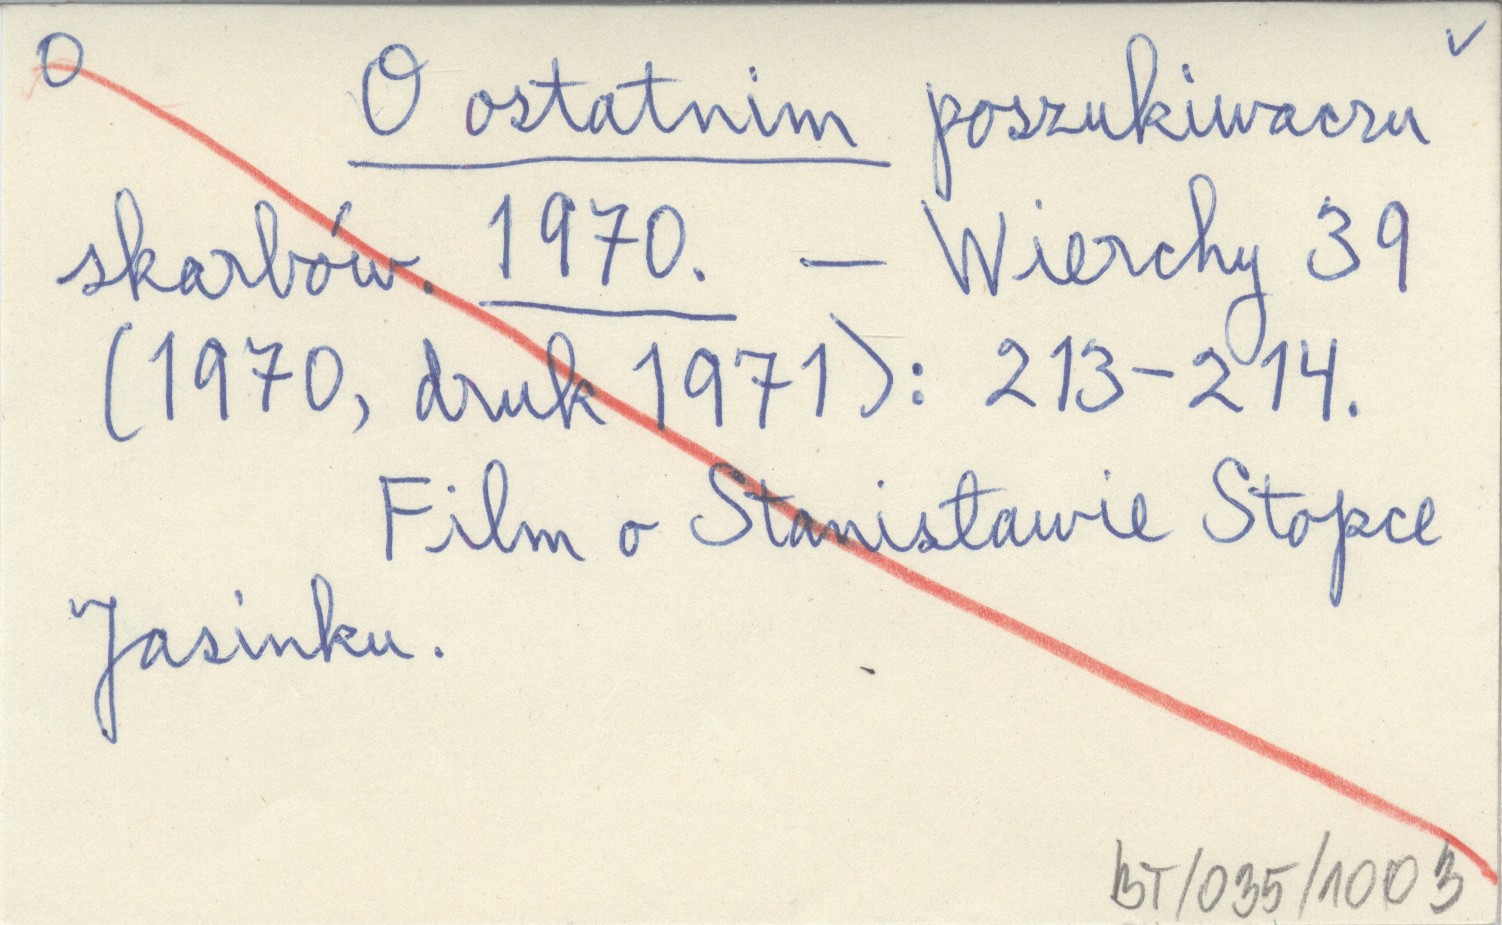 O ✓
O ostatnim poszukiwaczu
skarbów. 1970. — Wierchy 39
(1970, druk 1971): 213-214.
Film o Stanisławie Stopce
Jasinku.
BT/035/1003